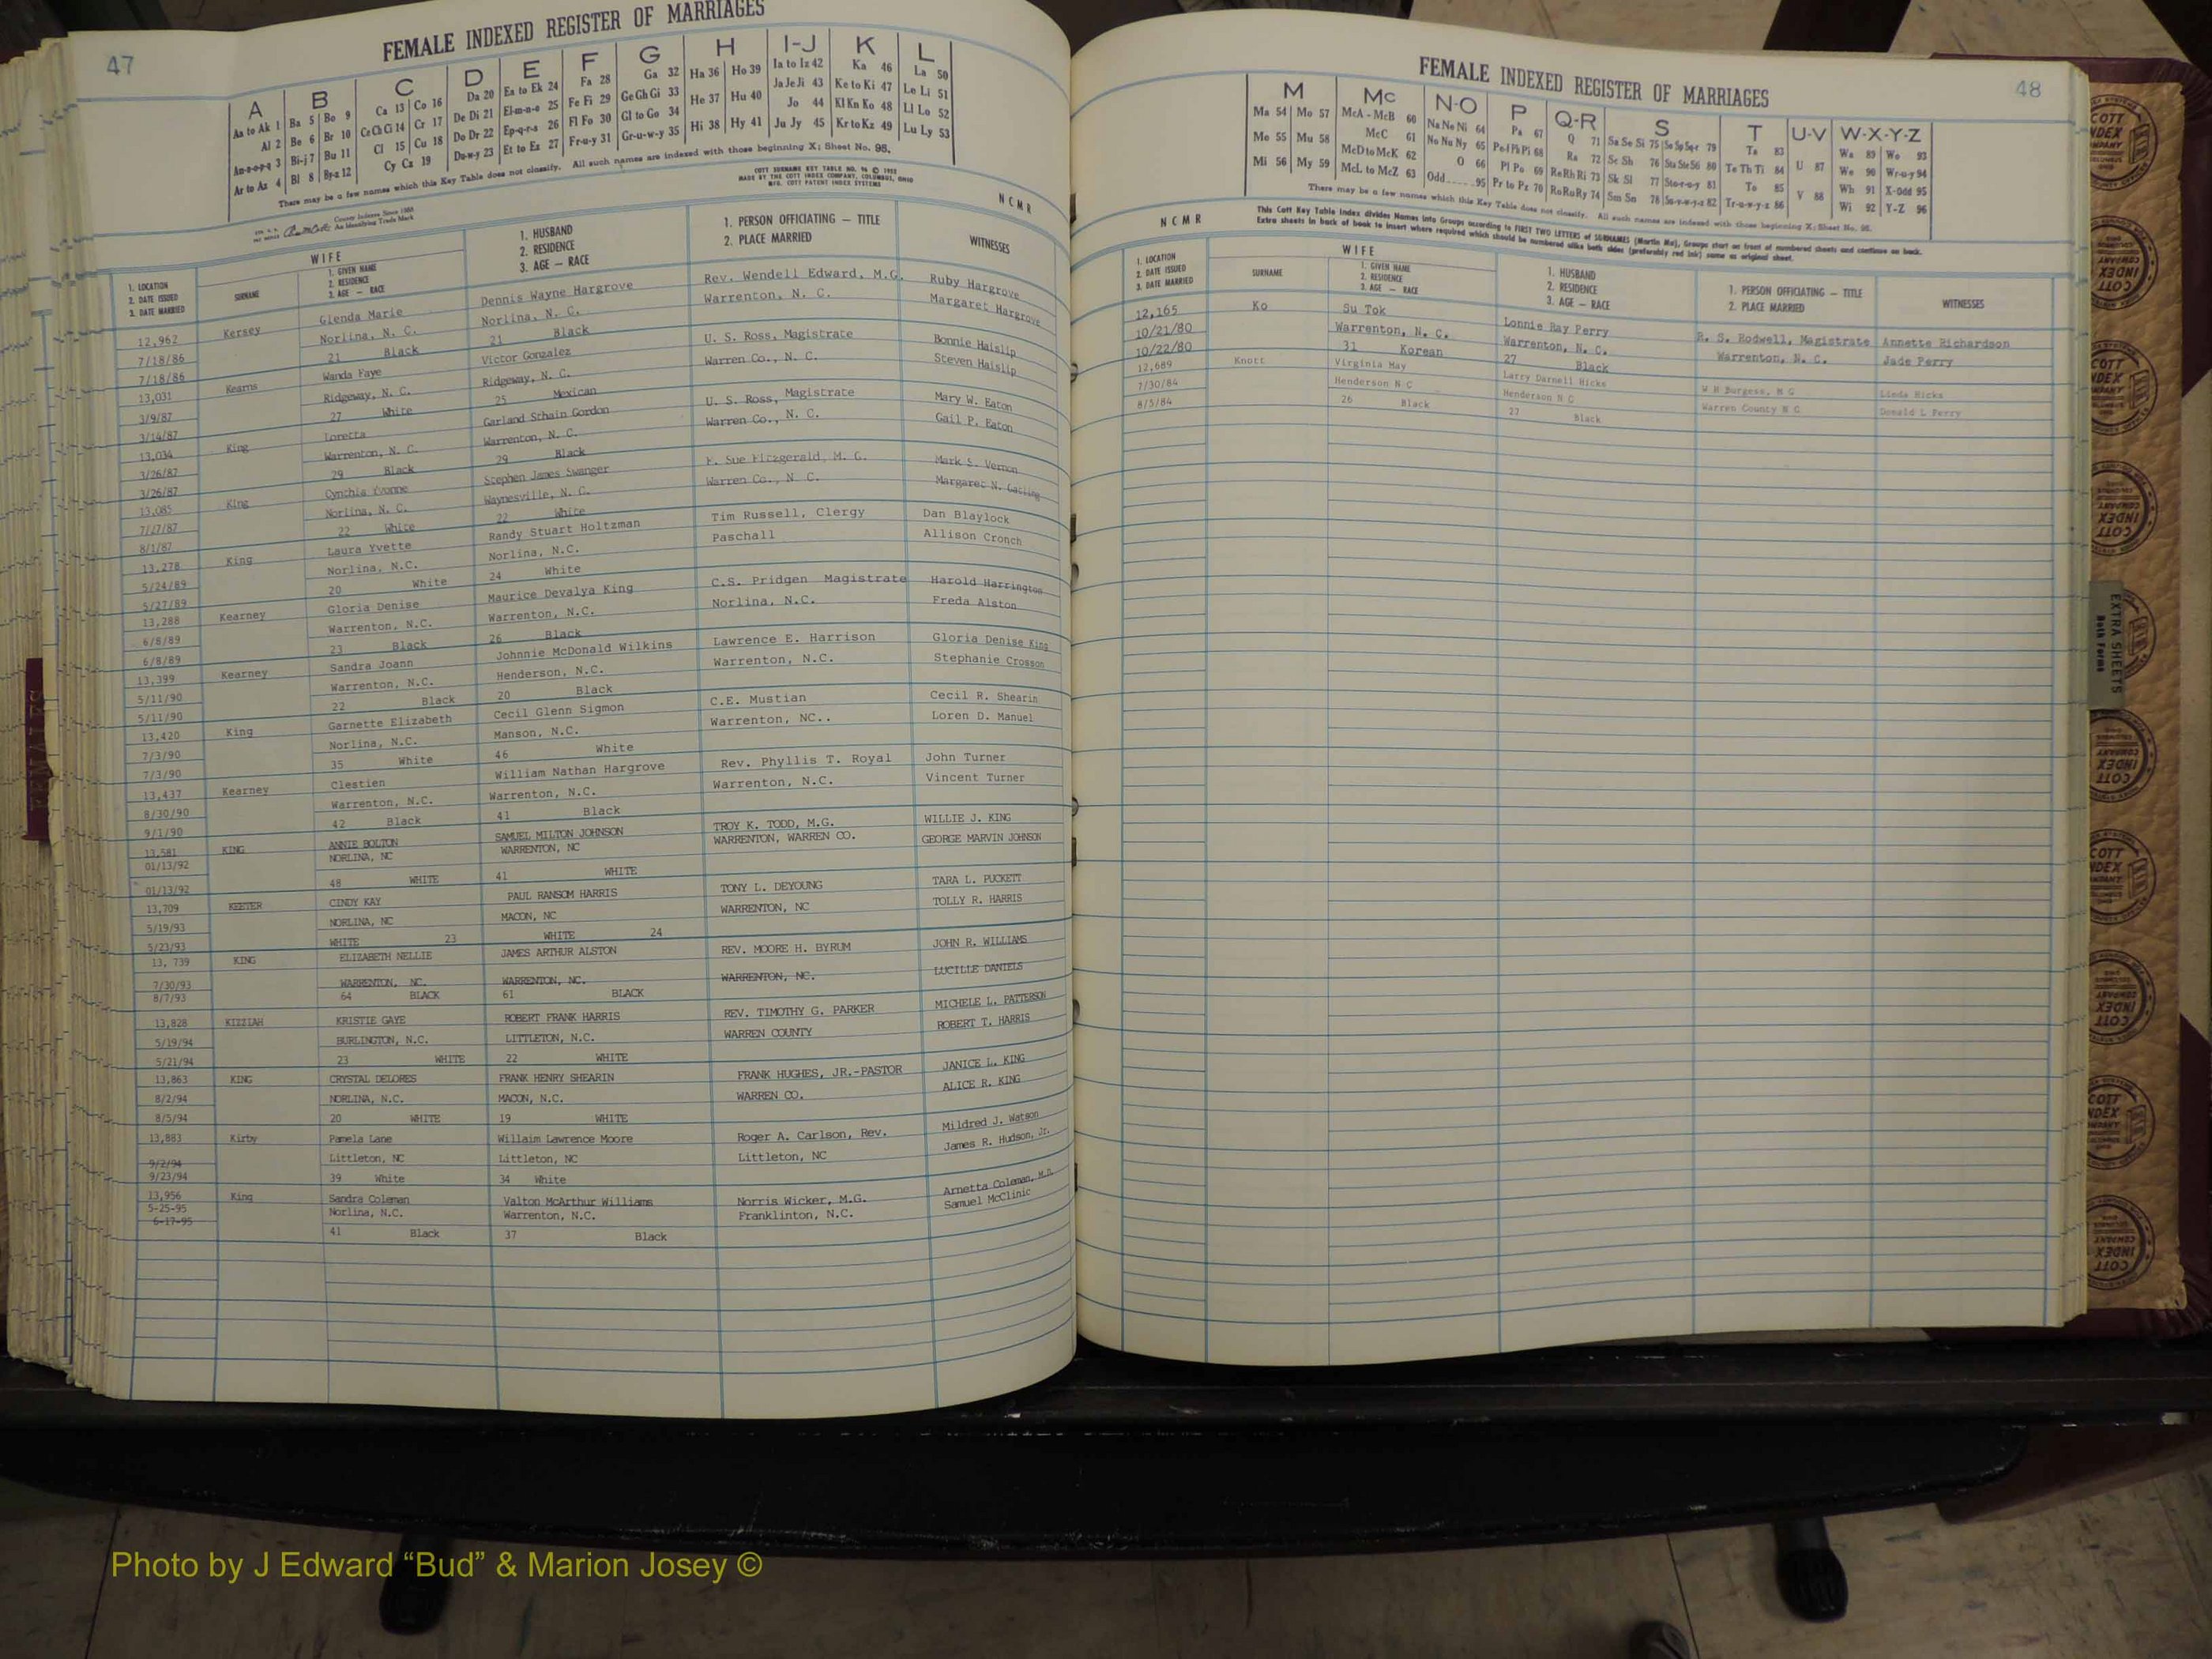 47
FEMALE INDEXED REGISTER OF MARRIAGES
A B C D E F G H I-J K L
Aa to Ak 1 Ba 5 Bo 9 Ca 13 Co 16 Da 20 Ea to Ek 24 Fa 28 Ga 32 Ha 36 Ho 39 Ia to Iz 42 Ka 46 La 50
Al 2 Be 6 Br 10 Ce Ch Ci 14 Cr 17 De Di 21 El-m-n-o 25 Fe Fi 29 Ge Gh Gi 33 He 37 Hu 40 Ja Je Ji 43 Ke to Ki 47 Le Li 51
An-o-p-q 3 Bi-j 7 Bu 11 Cl 15 Cu 18 Do Dr 22 Ep-q-r-s 26 Fl Fo 30 Gl to Go 34 Hi 38 Hy 41 Jo 44 Kl Kn Ko 48 Ll Lo 52
Ar to Az 4 Bl 8 By-z 12 Cy Cz 19 Du-w-y 23 Et to Ez 27 Fr-u-y 31 Gr-u-w-y 35 Ju Jy 45 Kr to Kz 49 Lu Ly 53
There may be a few names which this Key Table does not classify. All such names are indexed with those beginning X; Sheet No. 95.
COTT SURNAME KEY TABLE NO. 96 © 1952
MADE BY THE COTT INDEX COMPANY, COLUMBUS, OHIO
MFG. COTT PATENT INDEX SYSTEMS
County Indexes Since 1888
An Identifying Trade Mark
N C M R
1. LOCATION
2. DATE ISSUED
3. DATE MARRIED
WIFE
SURNAME
1. GIVEN NAME
2. RESIDENCE
3. AGE — RACE
1. HUSBAND
2. RESIDENCE
3. AGE — RACE
1. PERSON OFFICIATING — TITLE
2. PLACE MARRIED
WITNESSES
12,962 Kersey Glenda Marie Dennis Wayne Hargrove Rev. Wendell Edward, M.G. Ruby Hargrove
7/18/86 Norlina, N. C. Norlina, N. C. Warrenton, N. C. Margaret Hargrove
7/18/86 21 Black 21 Black
13,031 Kearns Wanda Faye Victor Gonzalez U. S. Ross, Magistrate Bonnie Haislip
3/9/87 Ridgeway, N. C. Ridgeway, N. C. Warren Co., N. C. Steven Haislip
3/14/87 27 White 25 Mexican
13,034 King Loretta Garland Sthain Gordon U. S. Ross, Magistrate Mary W. Eaton
3/26/87 Warrenton, N. C. Warrenton, N. C. Warren Co., N. C. Gail P. Eaton
3/26/87 29 Black 29 Black
13,085 King Cynthia Yvonne Stephen James Swanger F. Sue Fitzgerald, M. G. Mark S. Vernon
7/7/87 Norlina, N. C. Waynesville, N. C. Warren Co., N. C. Margaret N. Gatling
8/1/87 22 White 22 White
13,278 King Laura Yvette Randy Stuart Holtzman Tim Russell, Clergy Dan Blaylock
5/24/89 Norlina, N.C. Norlina, N.C. Paschall Allison Cronch
5/27/89 20 White 24 White
13,288 Kearney Gloria Denise Maurice Devalya King C.S. Pridgen Magistrate Harold Harrington
6/8/89 Warrenton, N.C. Warrenton, N.C. Norlina, N.C. Freda Alston
6/8/89 23 Black 26 Black
13,399 Kearney Sandra Joann Johnnie McDonald Wilkins Lawrence E. Harrison Gloria Denise King
5/11/90 Warrenton, N.C. Henderson, N.C. Warrenton, N.C. Stephanie Crosson
5/11/90 22 Black 20 Black
13,420 King Garnette Elizabeth Cecil Glenn Sigmon C.E. Mustian Cecil R. Shearin
7/3/90 Norlina, N.C. Manson, N.C. Warrenton, NC.. Loren D. Manuel
7/3/90 35 White 46 White
13,437 Kearney Clestien William Nathan Hargrove Rev. Phyllis T. Royal John Turner
8/30/90 Warrenton, N.C. Warrenton, N.C. Warrenton, N.C. Vincent Turner
9/1/90 42 Black 41 Black
13,581 KING ANNIE BOLTON SAMUEL MILTON JOHNSON TROY K. TODD, M.G. WILLIE J. KING
01/13/92 NORLINA, NC WARRENTON, NC WARRENTON, WARREN CO. GEORGE MARVIN JOHNSON
01/13/92 48 WHITE 41 WHITE
13,709 KEETER CINDY KAY PAUL RANSOM HARRIS TONY L. DEYOUNG TARA L. PUCKETT
5/19/93 NORLINA, NC MACON, NC WARRENTON, NC TOLLY R. HARRIS
5/23/93 WHITE 23 WHITE 24
13, 739 KING ELIZABETH NELLIE JAMES ARTHUR ALSTON REV. MOORE H. BYRUM JOHN R. WILLIAMS
7/30/93 WARRENTON, NC. WARRENTON, NC. WARRENTON, NC. LUCILLE DANIELS
8/7/93 64 BLACK 61 BLACK
13,828 KIZZIAH KRISTIE GAYE ROBERT FRANK HARRIS REV. TIMOTHY G. PARKER MICHELE L. PATTERSON
5/19/94 BURLINGTON, N.C. LITTLETON, N.C. WARREN COUNTY ROBERT T. HARRIS
5/21/94 23 WHITE 22 WHITE
13,863 KING CRYSTAL DELORES FRANK HENRY SHEARIN FRANK HUGHES, JR.-PASTOR JANICE L. KING
8/2/94 NORLINA, N.C. MACON, N.C. WARREN CO. ALICE R. KING
8/5/94 20 WHITE 19 WHITE
13,883 Kirby Pamela Lane Willaim Lawrence Moore Roger A. Carlson, Rev. Mildred J. Watson
9/2/94 Littleton, NC Littleton, NC Littleton, NC James R. Hudson, Jr.
9/23/94 39 White 34 White
13,956 King Sandra Coleman Valton McArthur Williams Norris Wicker, M.G. Arnetta Coleman, M.D.
5-25-95 Norlina, N.C. Warrenton, N.C. Franklinton, N.C. Samuel McClinic
6-17-95 41 Black 37 Black
48
FEMALE INDEXED REGISTER OF MARRIAGES
M Mc N-O P Q-R S T U-V W-X-Y-Z
Ma 54 Mo 57 McA - McB 60 Na Ne Ni 64 Pa 67 Q 71 Sa Se Si 75 So Sp Sq-r 79 Ta 83 U 87 Wa 89 Wo 93
Me 55 Mu 58 McC 61 No Nu Ny 65 Pe-f Ph Pi 68 Ra 72 Sc Sh 76 Sta Ste S6 80 Te Th Ti 84 V 88 We 90 Wr-u-y 94
Mi 56 My 59 McD to McK 62 O 66 Pl Po 69 Re Rh Ri 73 Sk Sl 77 Sto-r-u-y 81 To 85 Wh 91 X-Odd 95
McL to McZ 63 Odd 95 Pr to Pz 70 Ro Ru Ry 74 Sm Sn 78 Su-v-w-y-z 82 Tr-u-w-y-z 86 Wi 92 Y-Z 96
There may be a few names which this Key Table does not classify. All such names are indexed with those beginning X; Sheet No. 95.
This Cott Key Table Index divides Names into Groups according to FIRST TWO LETTERS of SURNAMES (Martin Ma), Groups start on front of numbered sheets and continue on back.
Extra sheets in back of book to insert where required which should be numbered alike both sides (preferably red ink) same as original sheet.
N C M R
1. LOCATION
2. DATE ISSUED
3. DATE MARRIED
WIFE
SURNAME
1. GIVEN NAME
2. RESIDENCE
3. AGE — RACE
1. HUSBAND
2. RESIDENCE
3. AGE — RACE
1. PERSON OFFICIATING — TITLE
2. PLACE MARRIED
WITNESSES
12,165 Ko Su Tok Lonnie Ray Perry R. S. Rodwell, Magistrate Annette Richardson
10/21/80 Warrenton, N. C. Warrenton, N. C. Warrenton, N. C. Jade Perry
10/22/80 31 Korean 27 Black
12,689 Knott Virginia May Larry Darnell Hicks W H Burgess, M G Linda Hicks
7/30/84 Henderson N C Henderson N C Warren County N C Donald L Perry
8/5/84 26 Black 27 Black
EXTRA SHEETS
Both Forms
COTT
INDEX
COMPANY
Photo by J Edward “Bud” & Marion Josey ©